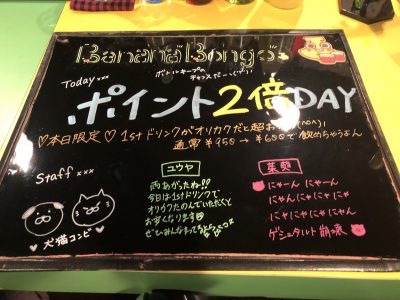 Banana Bongo
ボトルキープの
チャンスだー(ˊᵕˋ)ﾉ
Today xxx
ポイント2倍DAY
♡本日限定♡ 1stドリンクがオリカクだと超お
通常¥950→¥600で飲めちゃうよん
Staff xxx
犬猫コンビ
ユウヤ
雨あがったね!!
今日は1stドリンクで
オリカクたのんでいただくと
お安くなります
ぜひみんなまって
葉葵
にゃーん にゃーん
にゃんにゃにゃにゃ
にゃにゃにゃにゃん
ゲシュタルト崩壊